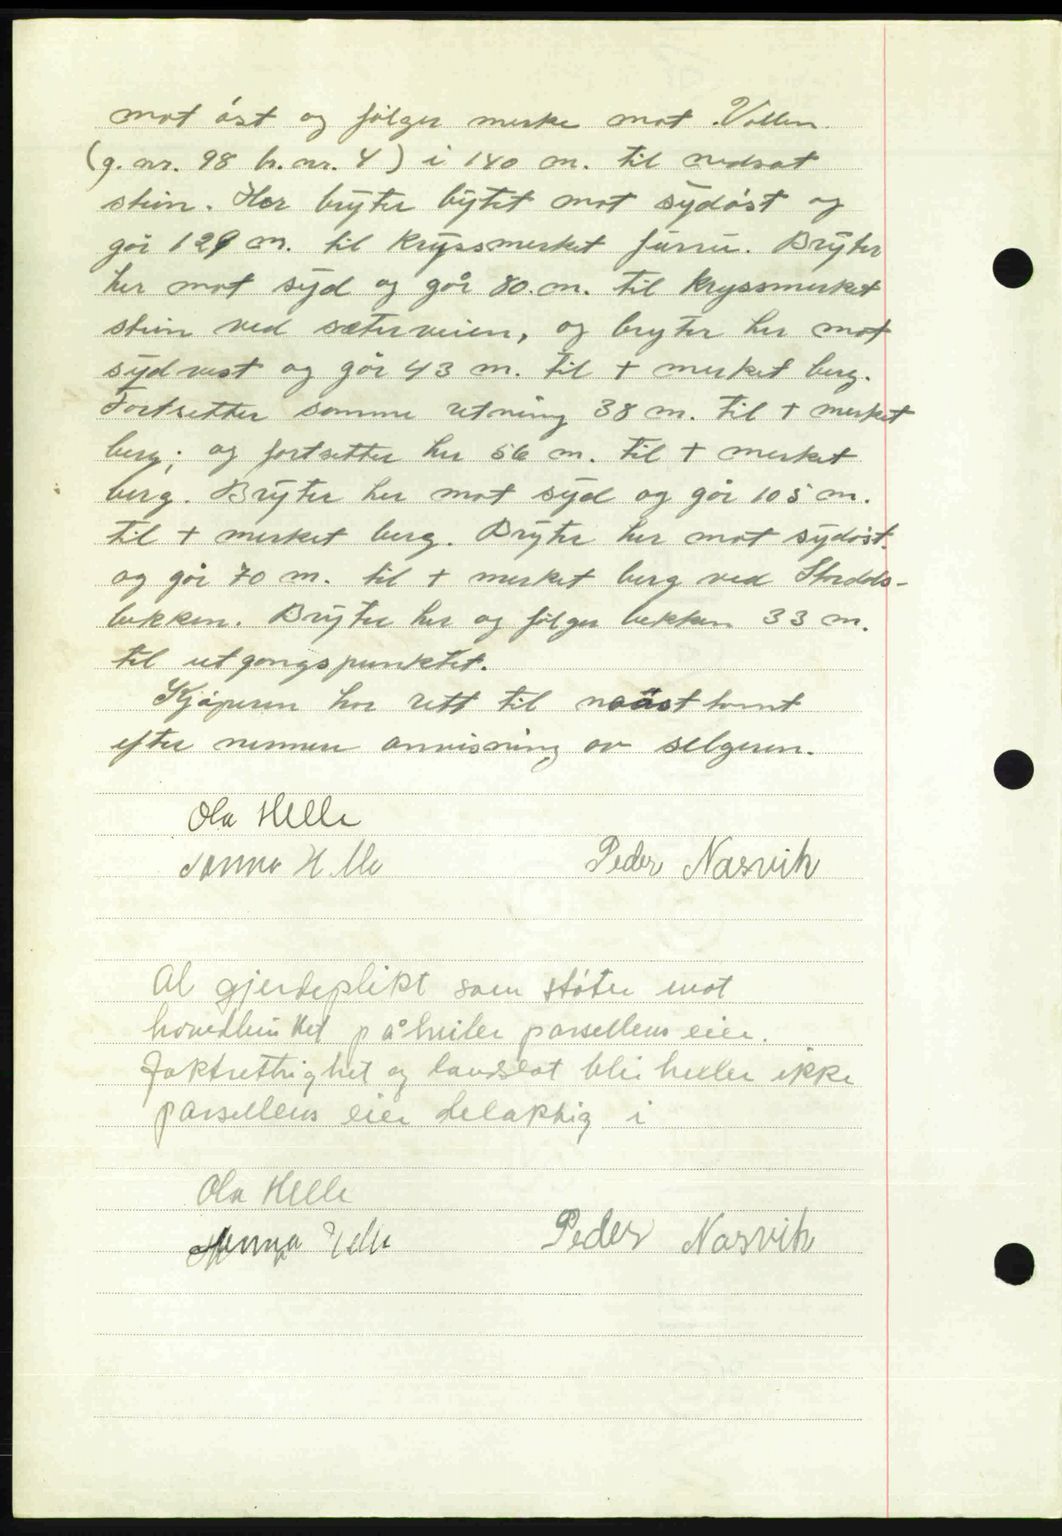 mot øst og følger merke mot Vollen
(g. nr. 98 br. nr. 4) i 140 m. til nedsat
sten. Her bryter bytet mot sydøst og
går 129 m. til kryssmerket furru. Bryter
her mot syd og går 80. m. til kryssmerket
sten ved sæterveien, og bryter her mot
sydvest og går 43 m. til + merket berg.
Fortsetter samme retning 38 m. til + merket
berg; og fortsetter her 56 m. til + merket
berg. Bryter her mot syd og går 105 m.
til + merket berg. Bryter her mot sydøst.
og går 70 m. til + merket berg ved
bekken. Bryter her og følger bekken 33 m.
til utgangspunktet.
Kjøperen har rett til naust tomt
efter nermere anvisning av selgeren.
Ola Helle
Helle Peder Nasvik
Al gjerdeplikt som støter mot
hovedbruket påhviler parsellens eier.
Jaktrettighet og landslot blir heller ikke
parsellens eier delaktig i
Ola Helle
Helle Peder Nasvik